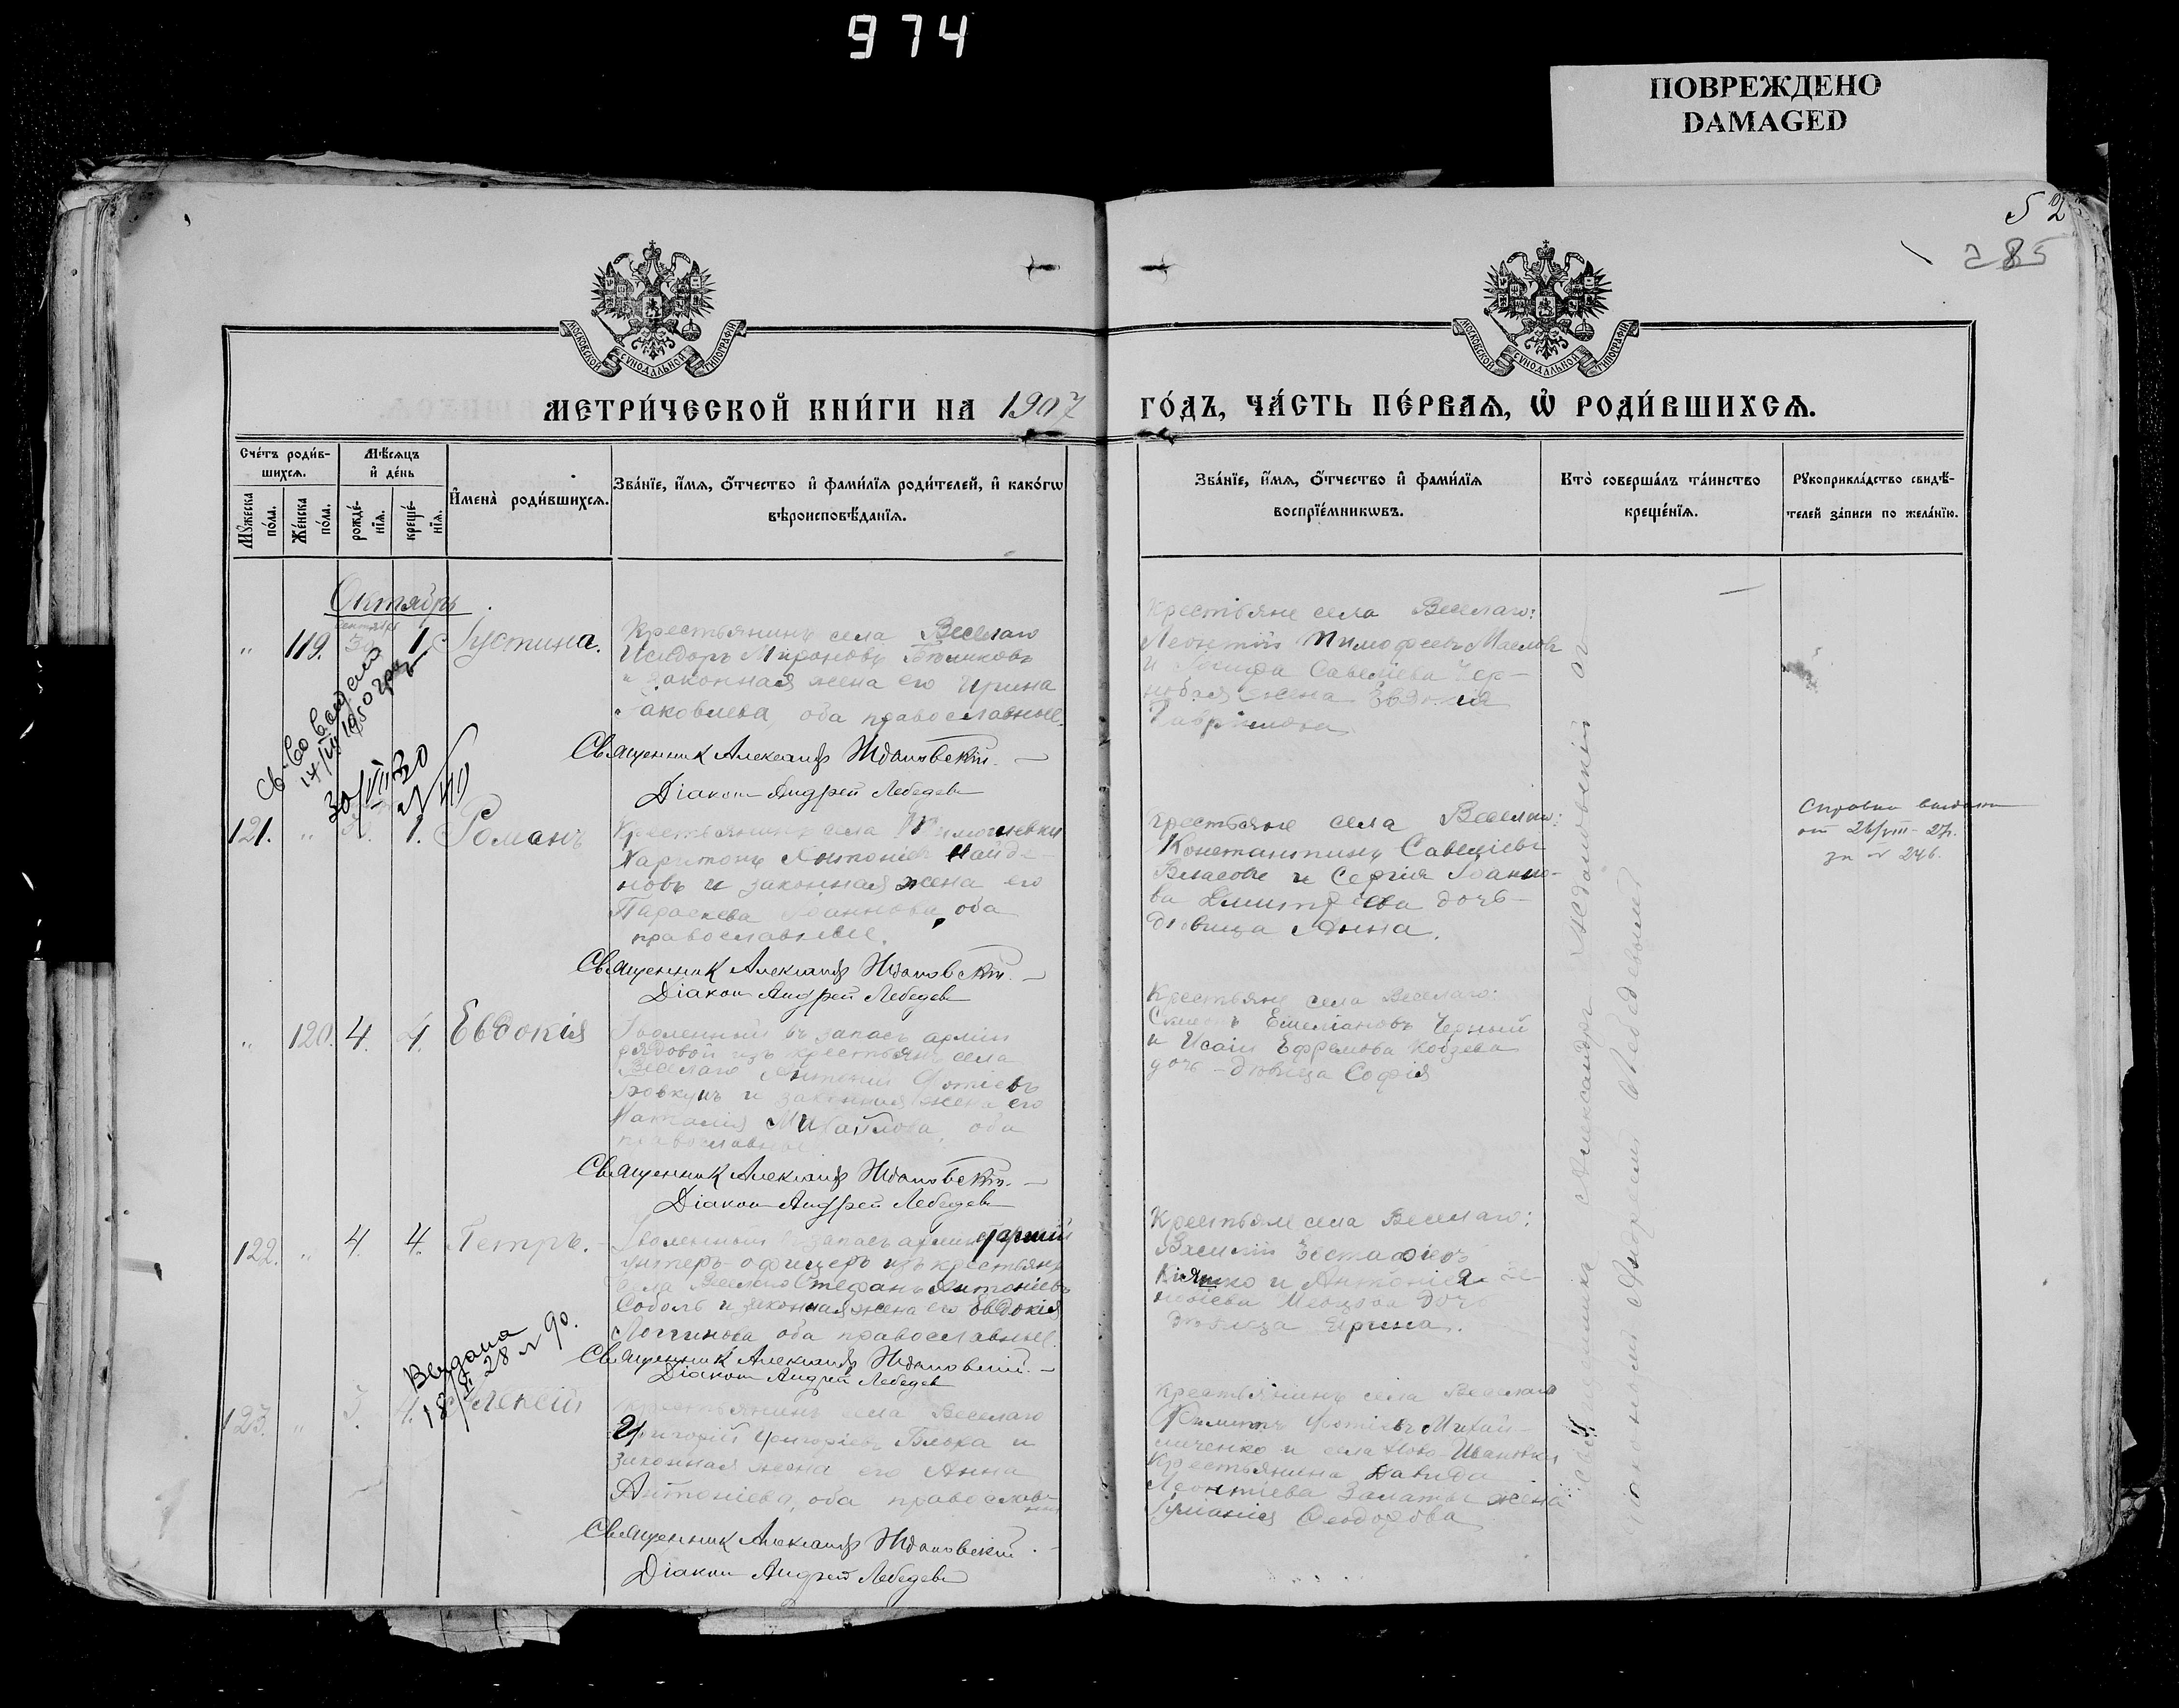 974
ПОВРЕЖДЕНО
DAMAGED
52
285
МОСКОВСКОЙ СѴНОДАЛЬНОЙ ТИПОГРАФІИ
МОСКОВСКОЙ СѴНОДАЛЬНОЙ ТИПОГРАФІИ
МЕТРИ́ЧЕСКОЙ КНИ́ГИ НА 1907
ГО́ДЪ, ЧА́СТЬ ПЕ́РВАЯ, Ѡ РОДИ́ВШИХСЯ.
Сче́тъ роди́в-
шихся.
Мꙋ́жеска
по́ла.
Же́нска
по́ла.
Мѣ́сяцъ
и҆ де́нь
рожде́-
нїя.
креще́-
нїя.
И҆мена̀ роди́вшихся.
Зва́нїе, и҆́мя, ѻ҆́тчество и҆ фами́лїя роди́телей, и҆ како́гѡ
вѣроисповѣ́данїя.
Зва́нїе, и҆́мя, ѻ҆́тчество и҆ фами́лїя
воспрїе́мникѡвъ.
Кто̀ соверша́лъ та́инство
креще́нїя.
Рꙋкоприкла́дство свидѣ́-
телей за́писи по жела́нїю.
Октябрь
сентября
" 119. 30 1. Іустина.
Крестьянинъ села Веселаго
Исидоръ Мироновъ
и законная жена его Ирина
Іаковлева, оба православные.
Священникъ Александръ Ждановскій.
Діаконъ Андрей Лебедевъ
Крестьяне села Веселаго:
Леонтій Тимофеевъ Маслов
и Савеліева Чер-
жена
Гаврилова
Св-во выдано
17/III 1950 года
30/VII 30
121. " 1. Романъ
Крестьянинъ села Тимошевки
Харитонъ Антоніевъ Найде-
новъ и законная жена его
Параскева Іоаннова, оба
православные.
Священникъ Александръ Ждановскій.
Діаконъ Андрей Лебедевъ
Крестьяне села Веселаго:
Константинъ Савеліевъ
Власов и Сергія Іоанно-
ва Дмитріева дочь-
дѣвица Анна.
Справка выдана
от 26/VIII-27г.
за № 246.
" 120. 4. 4. Евдокія
Уволенный въ запасъ арміи
рядовой изъ крестьянъ села
Веселаго Антоній Фотіевъ
Бовкунъ и законная жена его
Наталія Михайлова, оба
православные
Священникъ Александръ Ждановскій.
Діаконъ Андрей Лебедевъ
Крестьяне села Веселаго:
Симеонъ Емеліановъ Черный
и Исаіи Ефремова Кобзева
дочь-дѣвица Софія
122. " 4. 4. Петръ.
Уволенный въ запасъ арміи старшій
унтеръ-офицеръ изъ крестьянъ
села Веселаго Стефанъ Антоніевъ
Соболь и законная жена его Евдокія
Логгинова, оба православные.
Священникъ Александръ Ждановскій.
Діаконъ Андрей Лебедевъ
Крестьяне села Веселаго:
Василій Евстафіевъ
Кіяшко и Антонія Зе-
новіева дочь
дѣвица Ирина.
Выдана
18/XI 28 № 90.
123. " 3. 4. Алексій
Крестьянинъ села Веселаго
Григорій Григоріевъ Блоха и
законная жена его Анна
Антоніева, оба православ-
ные
Священникъ Александръ Ждановскій.
Діаконъ Андрей Лебедевъ
Крестьянинъ села Веселаго
Филиппъ Фотіевъ Михай-
личенко и села Ново-Ивановки
крестьянина Давида
Леонтіева жена
Іуліанія Феодорова
Священникъ Александръ Ждановскій съ
діакономъ Андреемъ Лебедевымъ